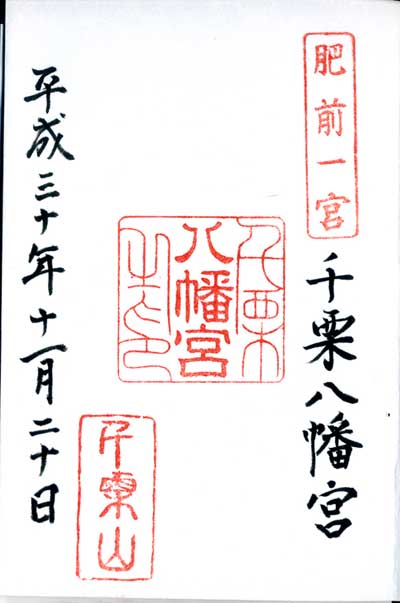 肥前一宮
千栗八幡宮
千栗
八幡宮
之印
平成三十年十一月二十日
千栗山